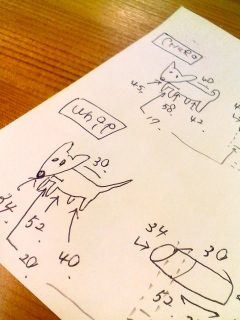 40
45.
58.
17.
42.
30.
34
52
20.
40
34
30
52